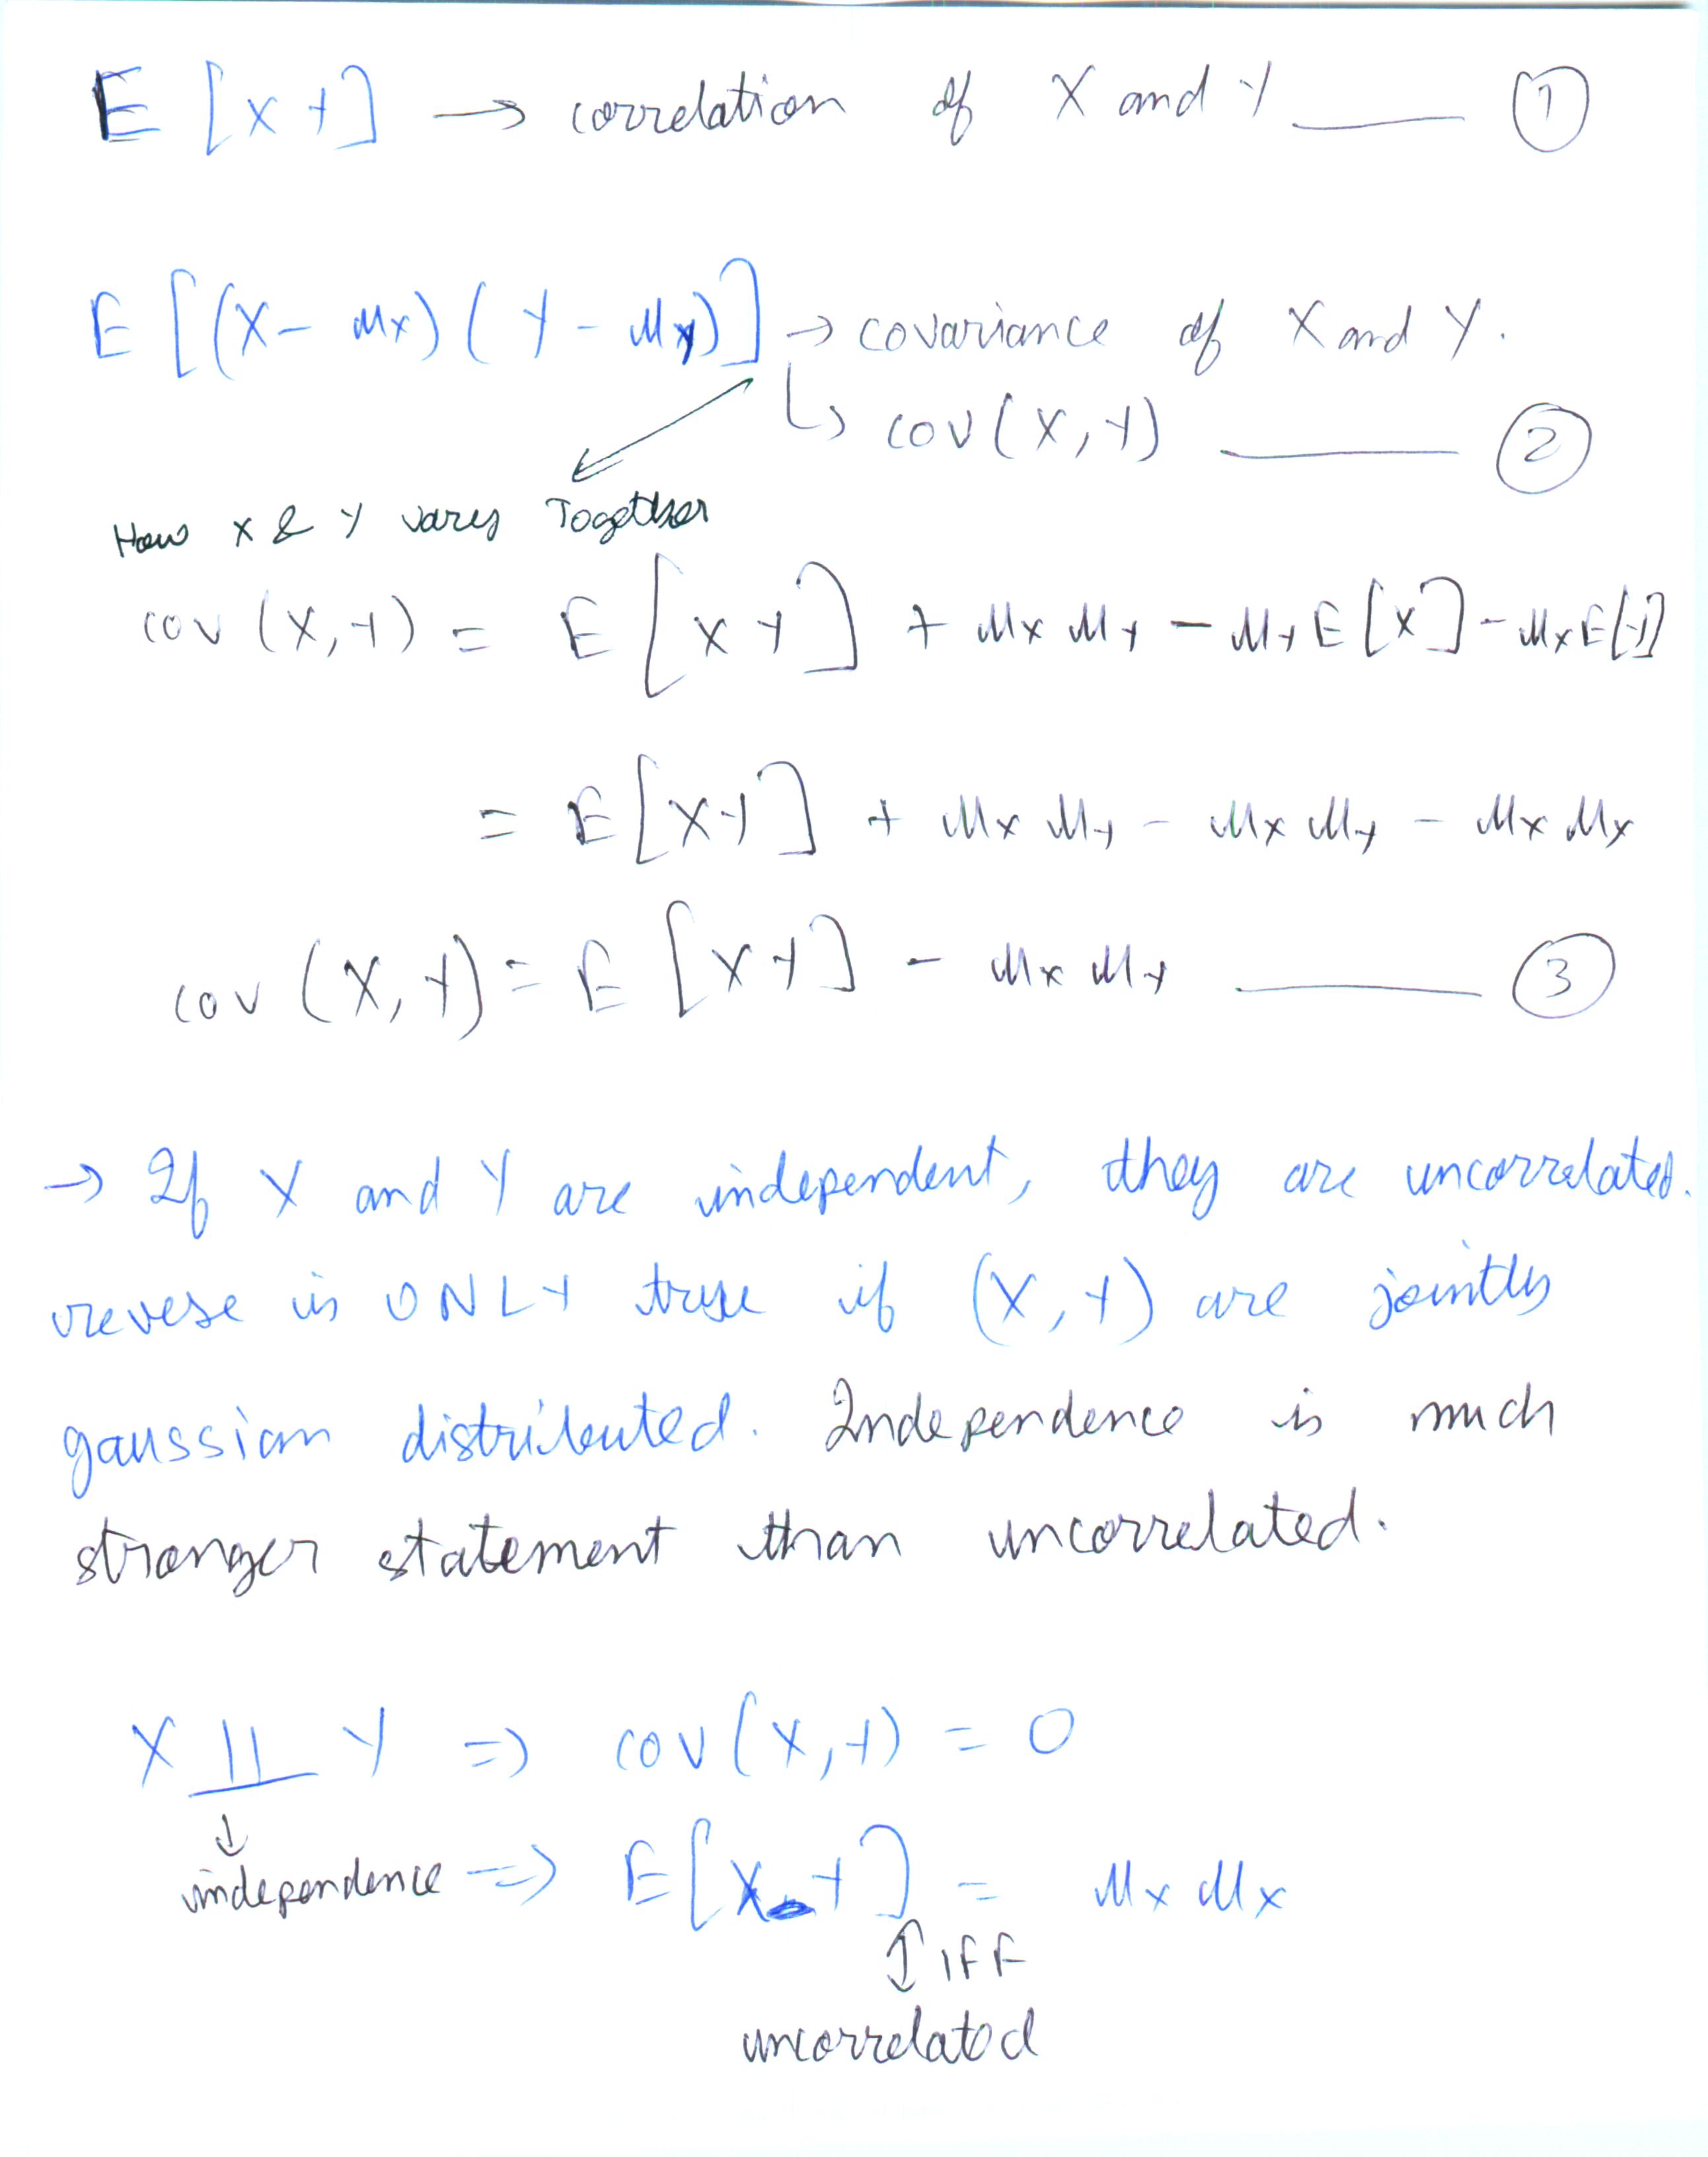 E [XY] → correlation of X and Y —— ①
E [(X - μx) (Y - μy)] → covariance of X and Y.
↳ cov (X, Y) —— ②
How X & Y varies Together
cov (X, Y) = E [XY] + μx μy - μy E [X] - μx E[Y]
= E [XY] + μx μy - μx μy - μx μx
cov (X, Y) = E [XY] - μx μy —— ③
→ If X and Y are independent, they are uncorrelated.
reverse is ONLY true if (X, Y) are jointly
gaussian distributed. Independence is much
stronger statement than uncorrelated.
X ⫫ Y ⇒ cov (X, Y) = 0
↓
independence ⇒ E[X Y] = μx μx
⇕ IFF
uncorrelated